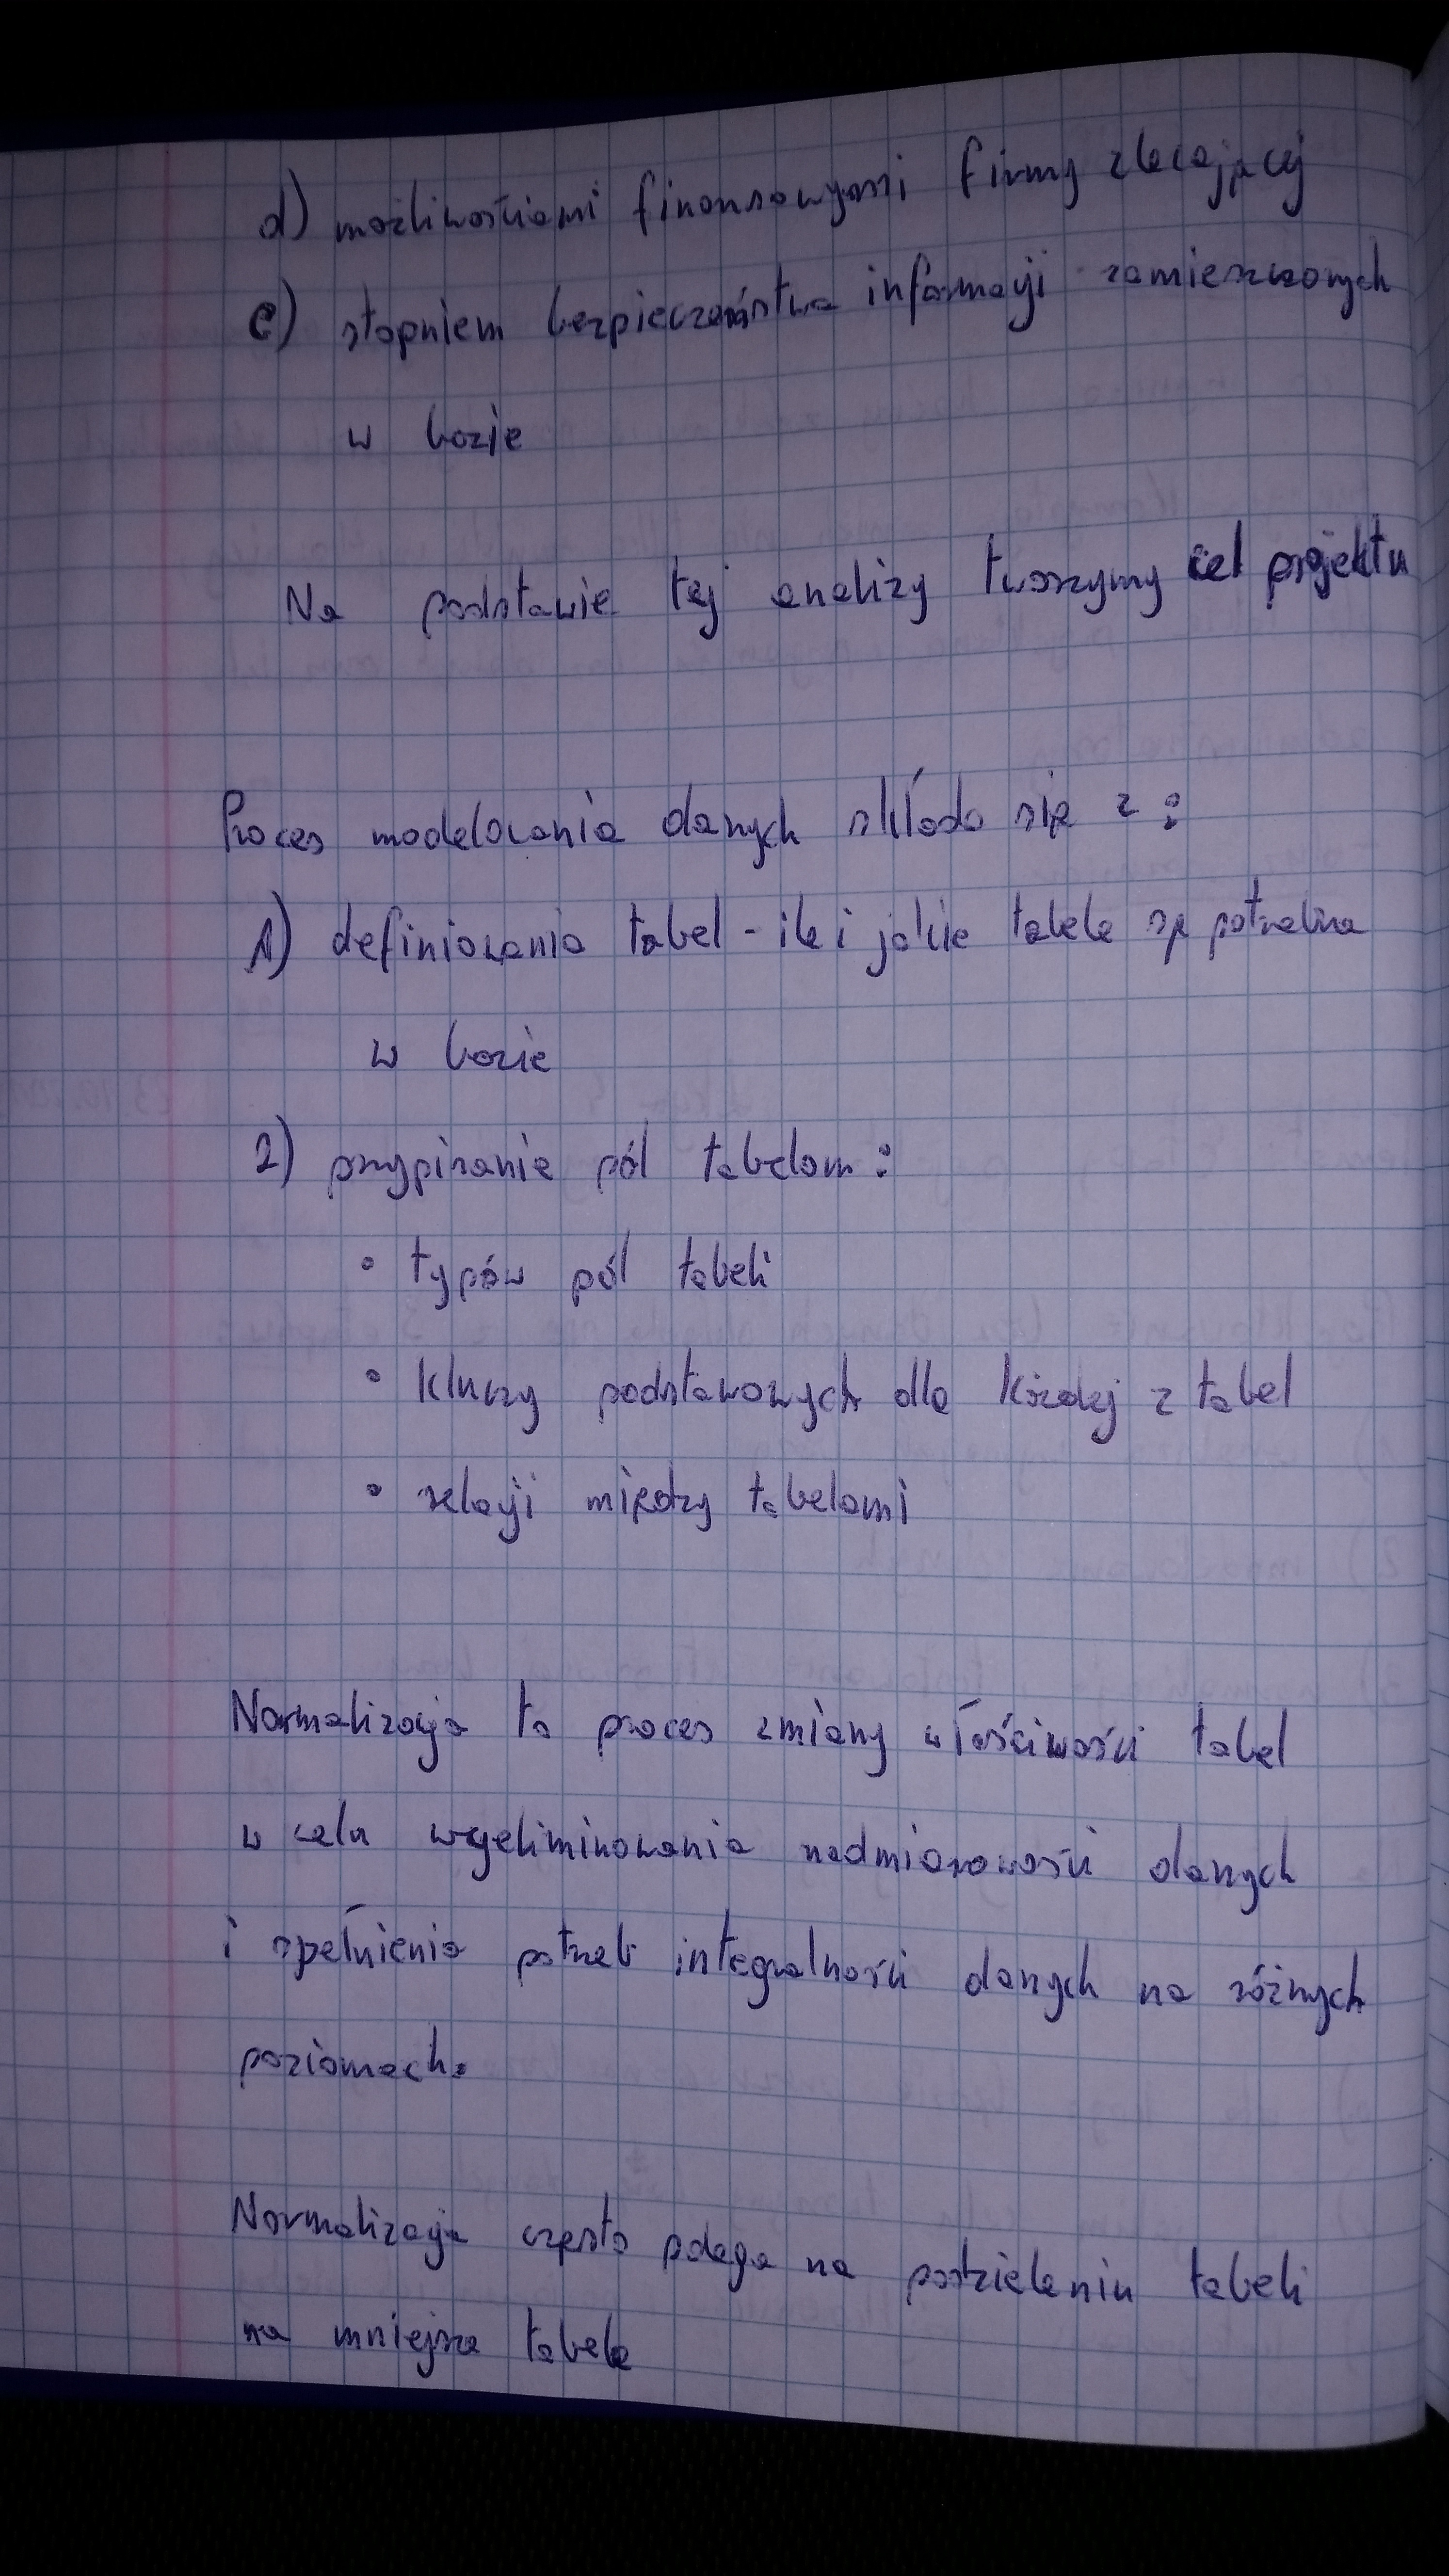 d) możliwościami finansowymi firmy zlecającej
e) stopniem bezpieczeństwa informacji zamieszczonych
w bazie
Na podstawie tej analizy tworzymy cel projektu
Proces modelowania danych składa się z:
1) definiowania tabel - ile i jakie tabele są potrzebne
w bazie
2) przypisanie pól tabelom:
• typów pól tabeli
• kluczy podstawowych dla każdej z tabel
• relacji między tabelami
Normalizacja to proces zmiany właściwości tabel
w celu wyeliminowania nadmiarowości danych
i spełnienia potrzeb integralności danych na różnych
poziomach.
Normalizacja często polega na podzieleniu tabeli
na mniejsze tabele